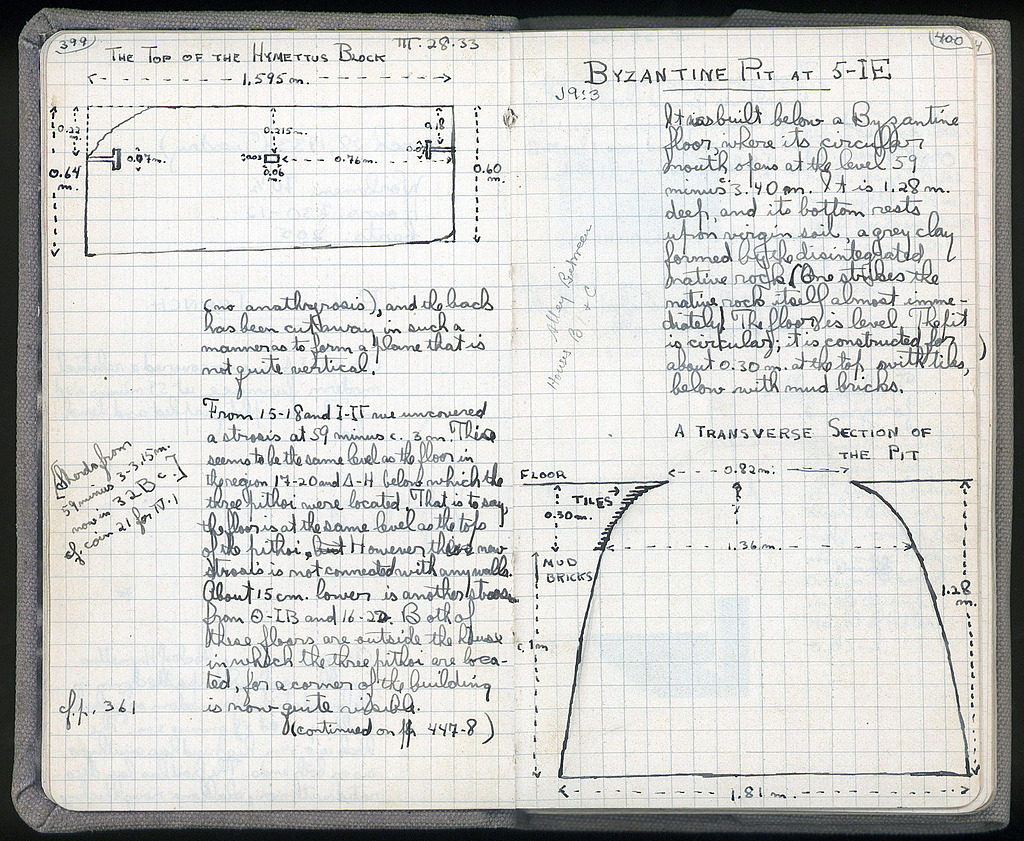 399
III·28·33
THE TOP OF THE HYMETTUS BLOCK
1.595 m.
0.22 m.
0.215 m.
0.18
0.64 m.
0.07 m.
0.03
0.76 m.
0.07
0.60 m.
0.06 m.
(no anathyrosis), and the back
has been cut away in such a
manner as to form a plane that is
not quite vertical.
From 15-18 and I-IΓ we uncovered
a strosis at 59 minus c. 3 m. This
seems to be the same level as the floor in
the region 17-20 and Δ-H below which the
three pithoi were located. That is to say,
the floor is at the same level as the tops
of the pithoi, but However this new
strosis is not connected with any walls.
About 15 cm. lower is another strosis
from Θ-IB and 16-22. Both of
these floors are outside the house
in which the three pithoi are loca-
ted, for a corner of the building
is now quite visible.
(continued on pp. 447-8)
[Sherds from
59 minus 3-3.15 m.
now in 32 B c.]
cf. coin 21 for IV.1
cf. p. 361
400
BYZANTINE PIT AT 5-IE
J9:3
It was built below a Byzantine
floor, where its circular
mouth opens at the level 59
minus 3.40 m. It is 1.28 m.
deep, and its bottom rests
upon virgin soil, a grey clay
formed by the disintegrated
native rock. (One strikes the
native rock itself almost imme-
diately) The floor is level. The pit
is circular; it is constructed for
about 0.30 m. at the top with tiles,
below with mud bricks.
Alley Between
Houses B + C
A TRANSVERSE SECTION OF
THE PIT
FLOOR
0.82 m.
TILES
0.30 m.
1.36 m.
MUD
BRICKS
1.28 m.
c. 1 m
1.81 m.